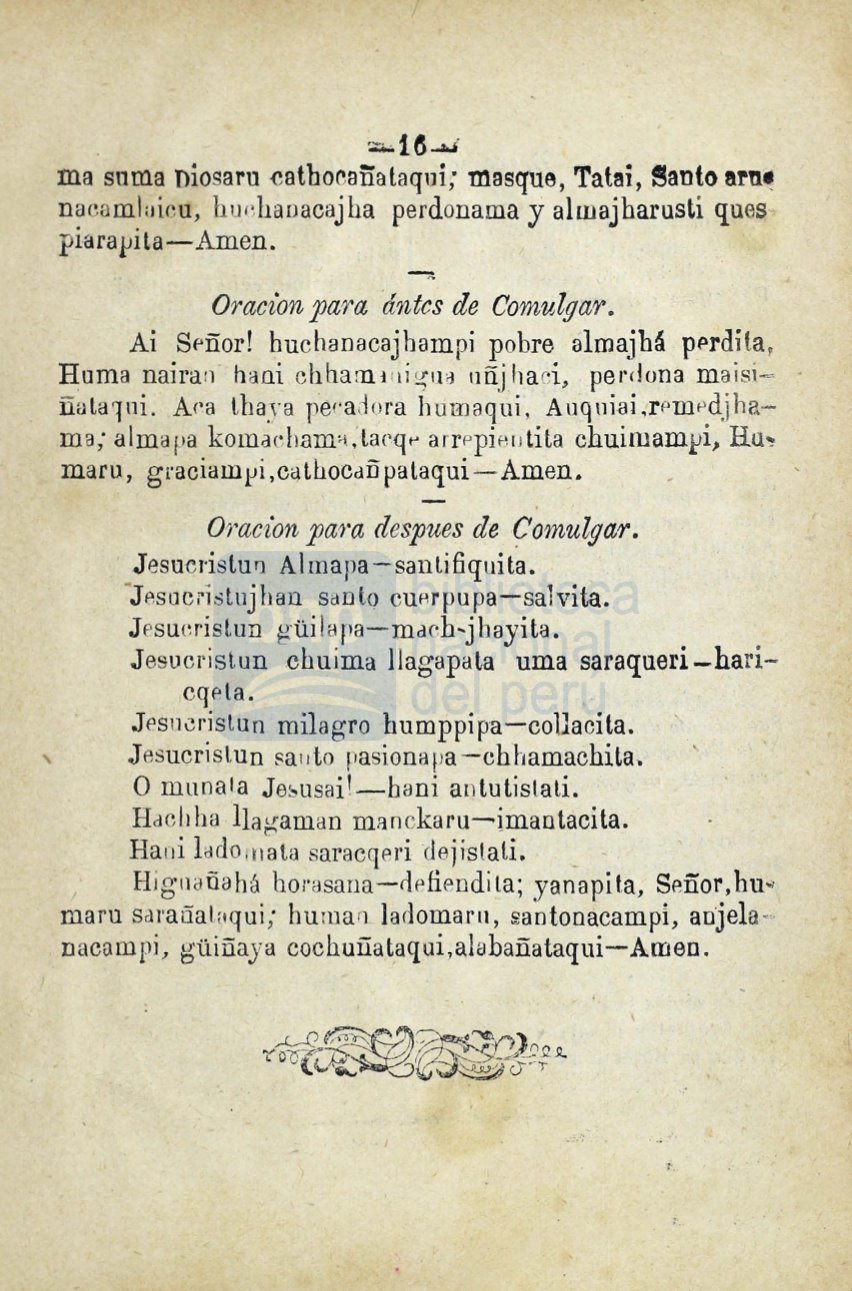 —16—
ma suma Diosaru cathocañataqui; masque, Tatai, Santo aru
nacamlaicu, huchanacajha perdonama y almajharusti ques
piarapita—Amen.
Oracion para ántes de Comulgar.
Ai Señor! huchanacajhampi pobre almajhá perdita,
Huma nairan hani chhamanigua uñjhaci, perdona maisi-
ñataqui. Aca thaya pecadora humaqui, Auquiai,remedjha-
ma; almapa komachama,tacqe arrepientita chuimampi, Hu-
maru, graciampi,cathocañpataqui—Amen.
Oracion para despues de Comulgar.
Jesucristun Almapa—santifiquita.
Jesucristujhan santo cuerpupa—salvita.
Jesucristun güilapa—mach-jhayita.
Jesucristun chuima llagapata uma saraqueri—hari-
cqeta.
Jesucristun milagro humppipa—collacita.
Jesucristun santo pasionapa—chhamachita.
O munata Jesusai!—hani antutistati.
Hachha llagaman manckaru—imantacita.
Hani ladomata saracqeri dejistati.
Higuañahá horasana—defiendita; yanapita, Señor,hu-
maru sarañataqui; human ladomaru, santonacampi, anjela-
nacampi, güiñaya cochuñataqui,alabañataqui—Amen.
biblioteca
nacional
del perú